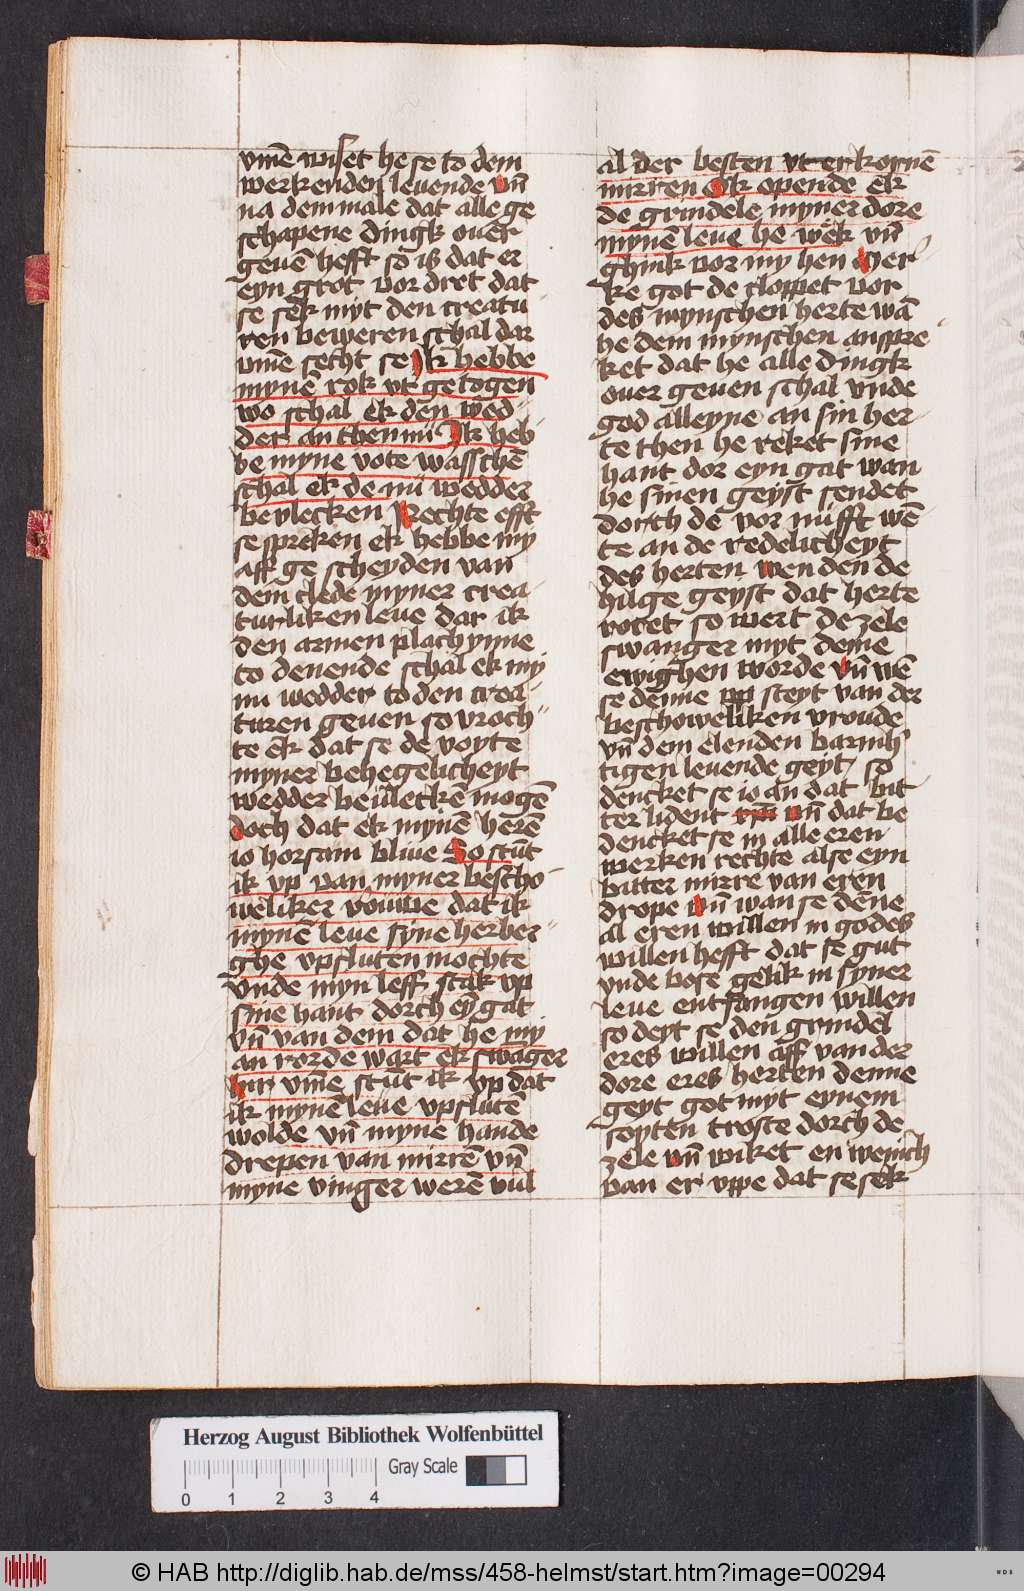 vmē wiset he se to dem
werkenden leuende vn̄
na dem male dat alle ge
schapene dingk ouer
geuē hefft so is dat er
eyn grot vordret dat
se sek myt den creatu
ren beweren schal dar
vmē secht se Ik hebbe
mynē rok vt getogen
wo schal ek den wed
der an then nu Ik heb
be myne vote wasschē
schal ek de nu wedder
beulecken Rechte efft
se spreken ek hebbe my
aff ge scheyden van
dem clede myner crea
turliken leue dar ik
den armen plach ynne
to denende schal ek my
nu wedder to den crea
turen geuen so vroch
te ek dat se de voyte
myner behegelicheyt
wedder beulleckē mogē
doch dat ek mynē herē
io horsam bliue So stūt
ik vp van myner bescho
weliker vouwe dat ik
mynē leue syne herber
ghe vpsluten mochte
vnde myn leff stak vp
sine hant dorch ey gat
vn̄ van dem dat he my
an rorde wart ek swāger
hir vmē stūt ik vp dat
ik mynē leue vpslutē
wolde vn̄ myne hande
drepen van mirrē vn̄
myne vinger werē vul
al der besten vterkornē
mirren Ok opende ek
de grindele myner dore
mynē leue he wek vn̄
ghink vor my hen Mer
ke got de cloppet vor
des mynschen herte wā
he dem mynschen anspre
ket dat he alle dingk
ouer geuen schal vnde
god alleyne an sin her
te then he reket sine
hant dor eyn gat wan
he sinen geyst sendet
dorch de vornufft wē
te an de redelicheyt
des herten wen den de
hilge geyst dat herte
roret so wert de zele
swanger myt deme
ewighen worde vn̄ wē
se denne vp steyt van der
beschoweliken vroude
vn̄ dem elenden barmh
tigen leuende geyt so
dencket se io an dat bit
ter lident vn̄ dat be
dencket se in alle eren
werken rechte alse eyn
bitter mirre van eren
drope vn̄ wan se dene
al eren willen in godes
willen hefft dat se gut
vnde bose gelik in syner
leue entfangen willen
so deyt se den grindel
eres willen aff van der
dore eres herten denne
geyt got myt eynem
soyten troste dorch de
zele vn̄ wiket en wenich
van er vppe dat se sek
Herzog August Bibliothek Wolfenbüttel
Gray Scale
0 1 2 3 4
© HAB http://diglib.hab.de/mss/458-helmst/start.htm?image=00294